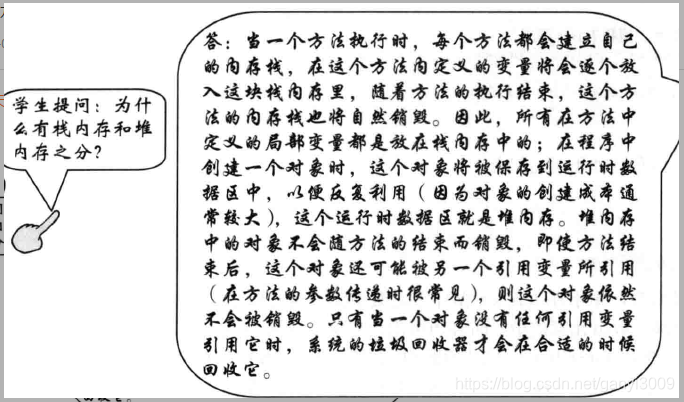 学生提问：为什
么有栈内存和堆
内存之分？
答：当一个方法执行时，每个方法都会建立自己
的内存栈，在这个方法内定义的变量将会逐个放
入这块栈内存里，随着方法的执行结束，这个方
法的内存栈也将自然销毁。因此，所有在方法中
定义的局部变量都是放在栈内存中的；在程序中
创建一个对象时，这个对象将被保存到运行时数
据区中，以便反复利用（因为对象的创建成本通
常较大），这个运行时数据区就是堆内存。堆内存
中的对象不会随方法的结束而销毁，即使方法结
束后，这个对象还可能被另一个引用变量所引用
（在方法的参数传递时很常见），则这个对象依然
不会被销毁。只有当一个对象没有任何引用变量
引用它时，系统的垃圾回收器才会在合适的时候
回收它。